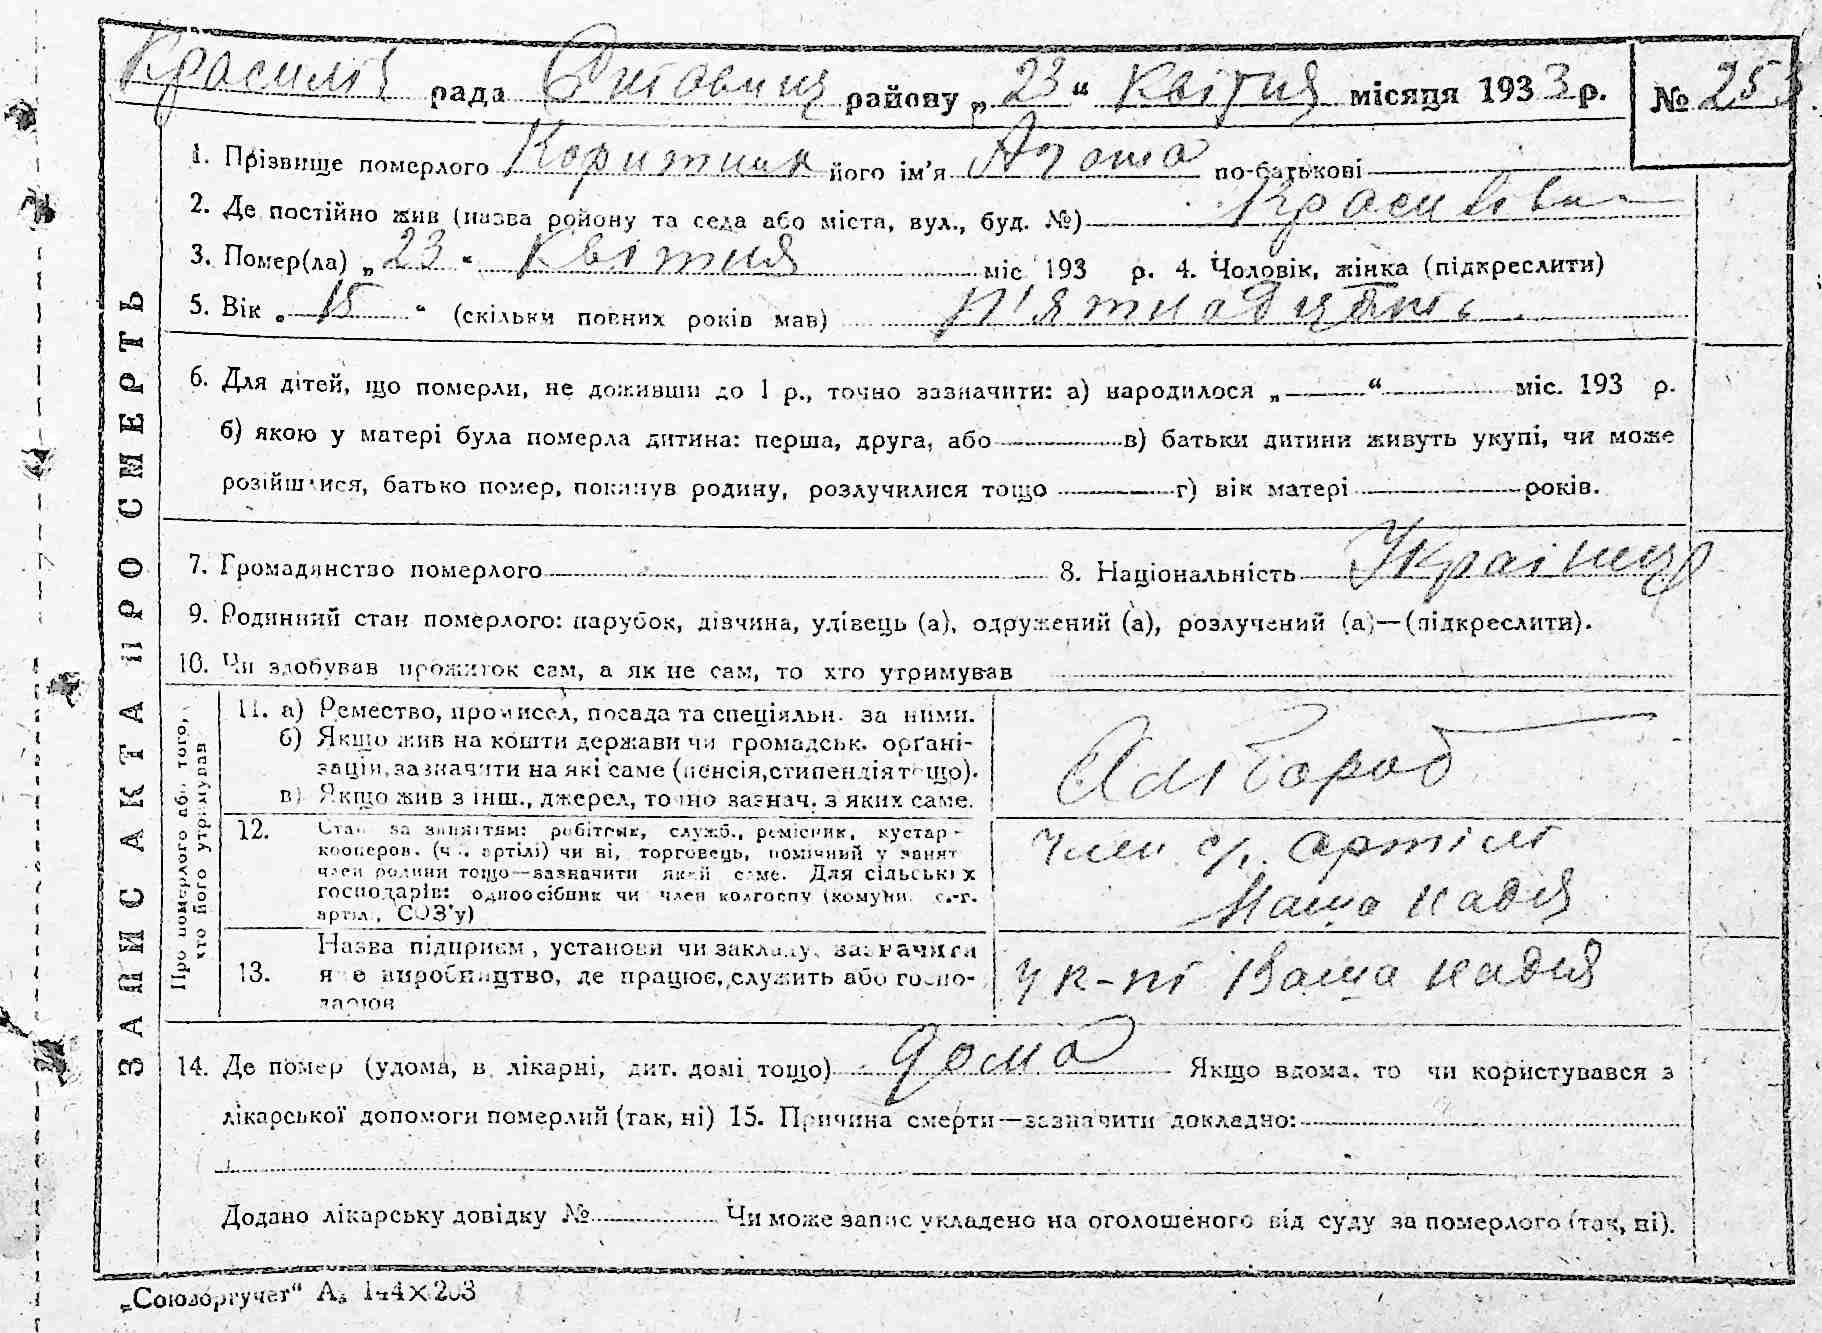 рада районову „23“ Квітня місяця 1933 р. № 253
1. Прізвище померлого його ім'я по-батькові
2. Де постійно жив (назва району та села або міста, вул., буд. №)
3. Помер(ла) „23“ Квітня міс 193 р. 4. Чоловік, жінка (підкреслити)
5. Вік „15“ (скільки повних років мав) п'ятнадцять
6. Для дітей, що померли, не доживши до 1 р., точно зазначити: а) народилося „—“ міс. 193 р.
б) якою у матері була померла дитина: перша, друга, або — в) батьки дитини живуть укупі, чи може
розійшлися, батько помер, покинув родину, розлучилися тощо — г) вік матері — років.
7. Громадянство померлого 8. Національність Україн
9. Родинний стан померлого: парубок, дівчина, удівець (а), одружений (а), розлучений (а)—(підкреслити).
10. Чи здобував прожиток сам, а як не сам, то хто утримував
11. а) Ремество, промисел, посада та спеціяльн. за ними.
б) Якщо жив на кошти держави чи громадськ. орґані-
зацій, зазначити на які саме (пенсія, стипендія тощо).
в) Якщо жив з інш., джерел, точно зазнач. з яких саме.
Хлібороб
12. Стан за заняттям: робітник, служб., ремісник, кустар-
кооперов. (чл. артілі) чи ні, торговець, помічний у занят
член родини тощо—зазначити який саме. Для сільських
господарів: одноосібник чи член колгоспу (комуни, с.-г.
артіл., СОЗ'у)
Член с/г. артілі
Наша надія
13. Назва підприєм, установи чи закладу, зазначити
яке виробництво, де працює, служить або госпо-
дарює
У к-пі Наша надія
14. Де помер (удома, в лікарні, дит. домі тощо) дома Якщо вдома, то чи користувався з
лікарської допомоги померлий (так, ні) 15. Причина смерти—зазначити докладно:
Додано лікарську довідку № Чи може запис укладено на оголошеного від суду за померлого (так, ні).
„Союзоргучет“ А₅ 144×203
ЗАПИС АКТА ПРО СМЕРТЬ
Про померлого або того,
хто його утримував